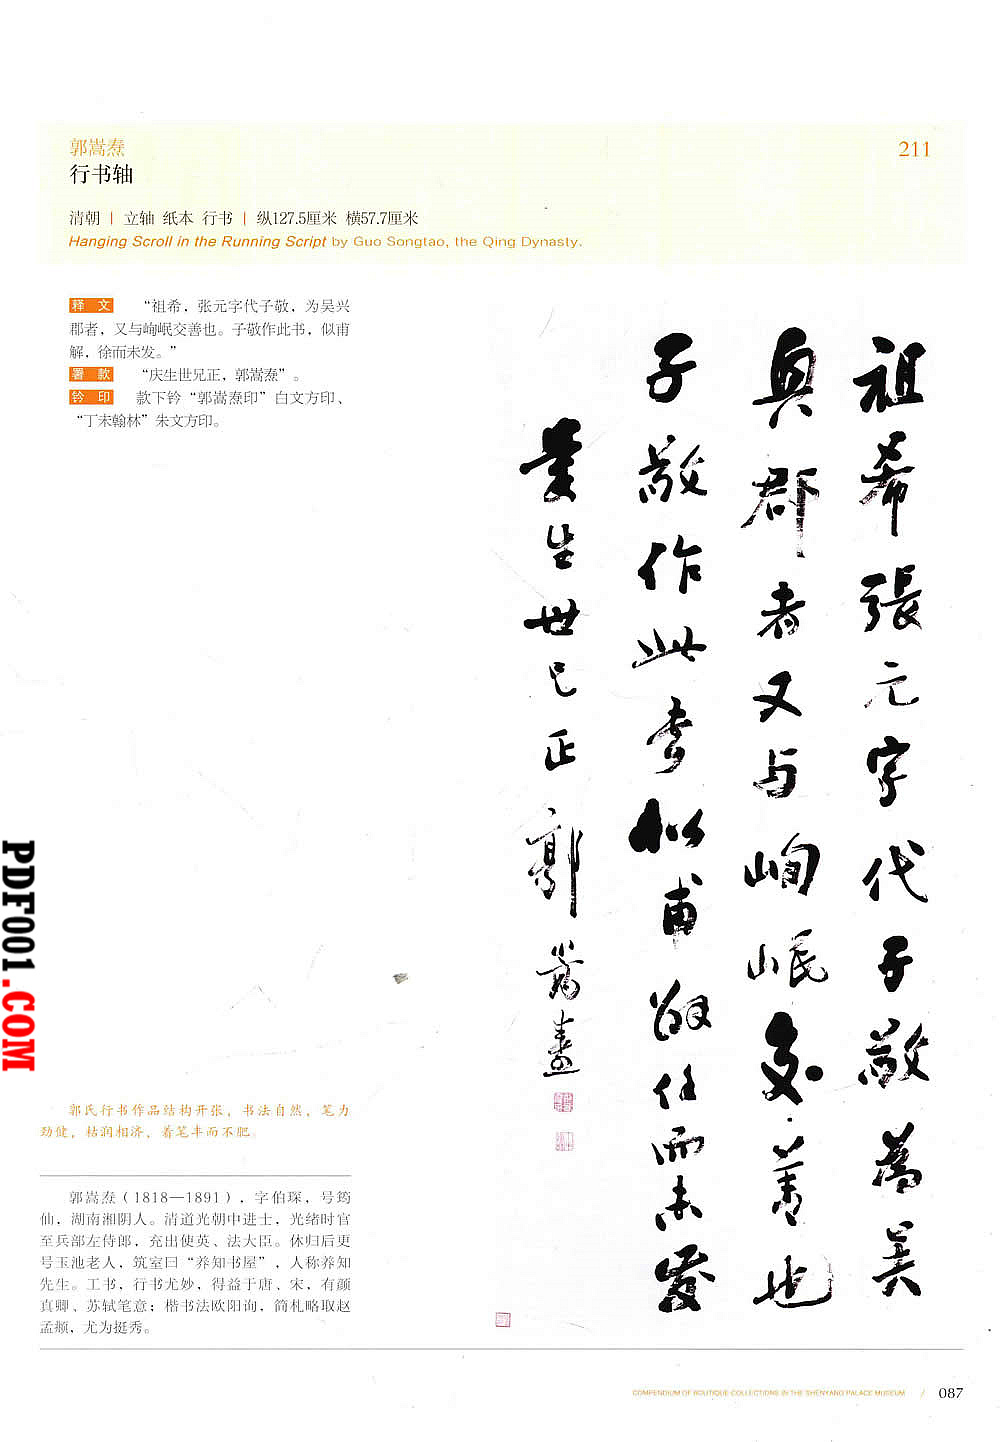 郭嵩焘
211
行书轴
清朝 | 立轴 纸本 行书 | 纵127.5厘米 横57.7厘米
Hanging Scroll in the Running Script by Guo Songtao, the Qing Dynasty.
释 文 “祖希，张元字代子敬，为吴兴
郡者，又与峋岷交善也。子敬作此书，似甫
解，徐而未发。”
署 款 “庆生世兄正，郭嵩焘”。
钤 印 款下钤“郭嵩焘印”白文方印、
“丁未翰林”朱文方印。
祖希張元字代子敬為吴
興郡者又与峋岷交善也
子敬作此書似甫解徐而未發
世兄正郭嵩焘
郭氏行书作品结构开张，书法自然，笔力
劲健，枯润相济，着笔丰而不肥。
郭嵩焘（1818—1891），字伯琛，号筠
仙，湖南湘阴人。清道光朝中进士，光绪时官
至兵部左侍郎，充出使英、法大臣。休归后更
号玉池老人，筑室曰“养知书屋”，人称养知
先生。工书，行书尤妙，得益于唐、宋，有颜
真卿、苏轼笔意；楷书法欧阳询，简札略取赵
孟頫，尤为挺秀。
COMPENDIUM OF BOUTIQUE COLLECTIONS IN THE SHENYANG PALACE MUSEUM / 087
PDF001.COM